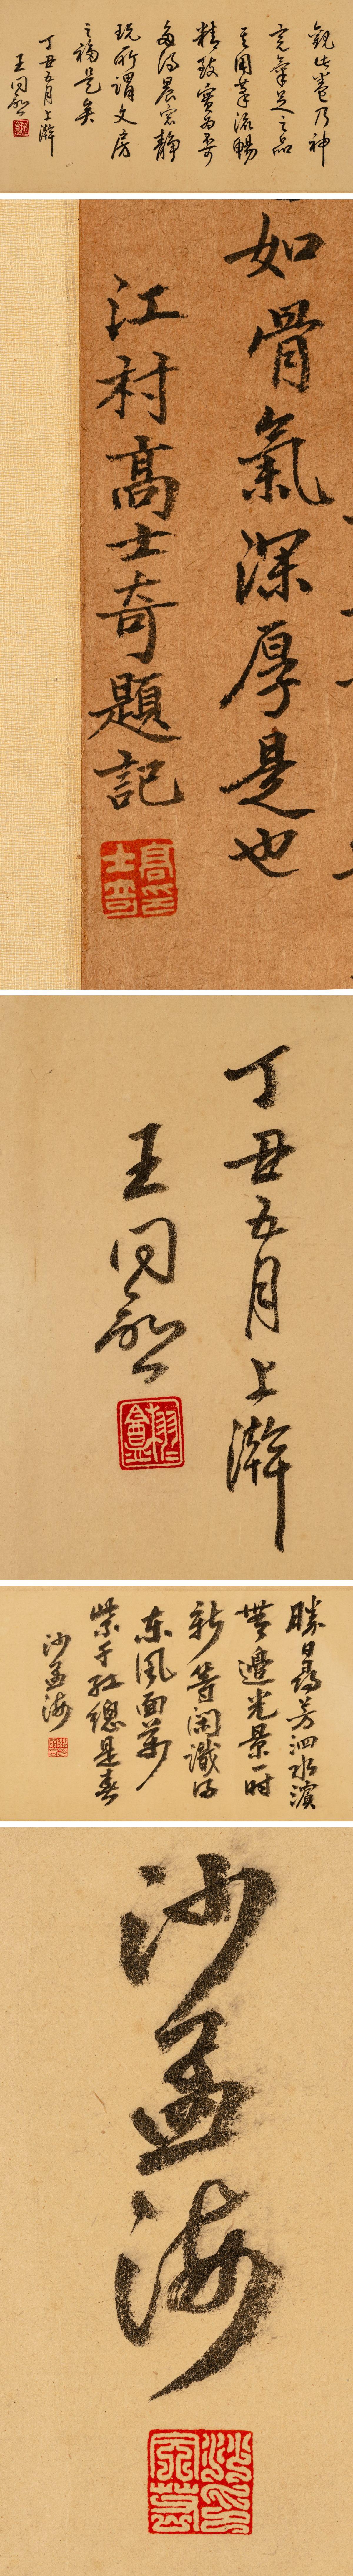 觀此卷乃神
完氣足之品
其用筆流暢
精致實為希
每得晨窓靜
玩所謂文房
之福是矣
丁丑五月上澣
王同愈
如骨氣深厚是也
江村高士奇題記
高士奇印
丁丑五月上澣
王同愈
栩盦
勝日尋芳泗水濱
無邊光景一時
新等閑識得
東風面萬
紫千紅總是春
沙孟海
沙孟海